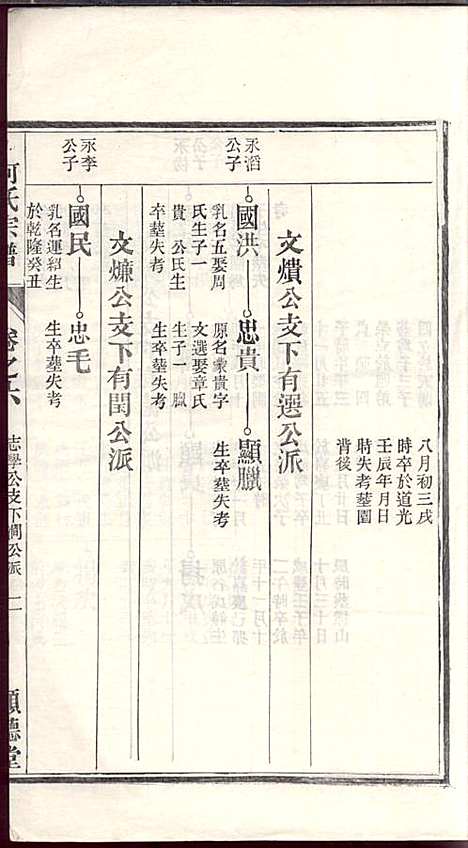 八月初三戌
時卒於道光
壬辰年月日
時失考塟園
背後
文燌公支下有選公派
永滔
公子
國洪
乳名五娶周
氏生子一
貴 公氏生
卒塟失考
忠貴
原名象貴字
文選娶章氏
生子一 臘
生卒塟失考
顯臘
生卒塟失考
文㷙公支下有閏公派
永李
公子
國民
乳名運紹生
於乾隆癸丑
忠毛
生卒塟失考
何氏宗譜
卷之六
志學公支下
公派
二
順德堂